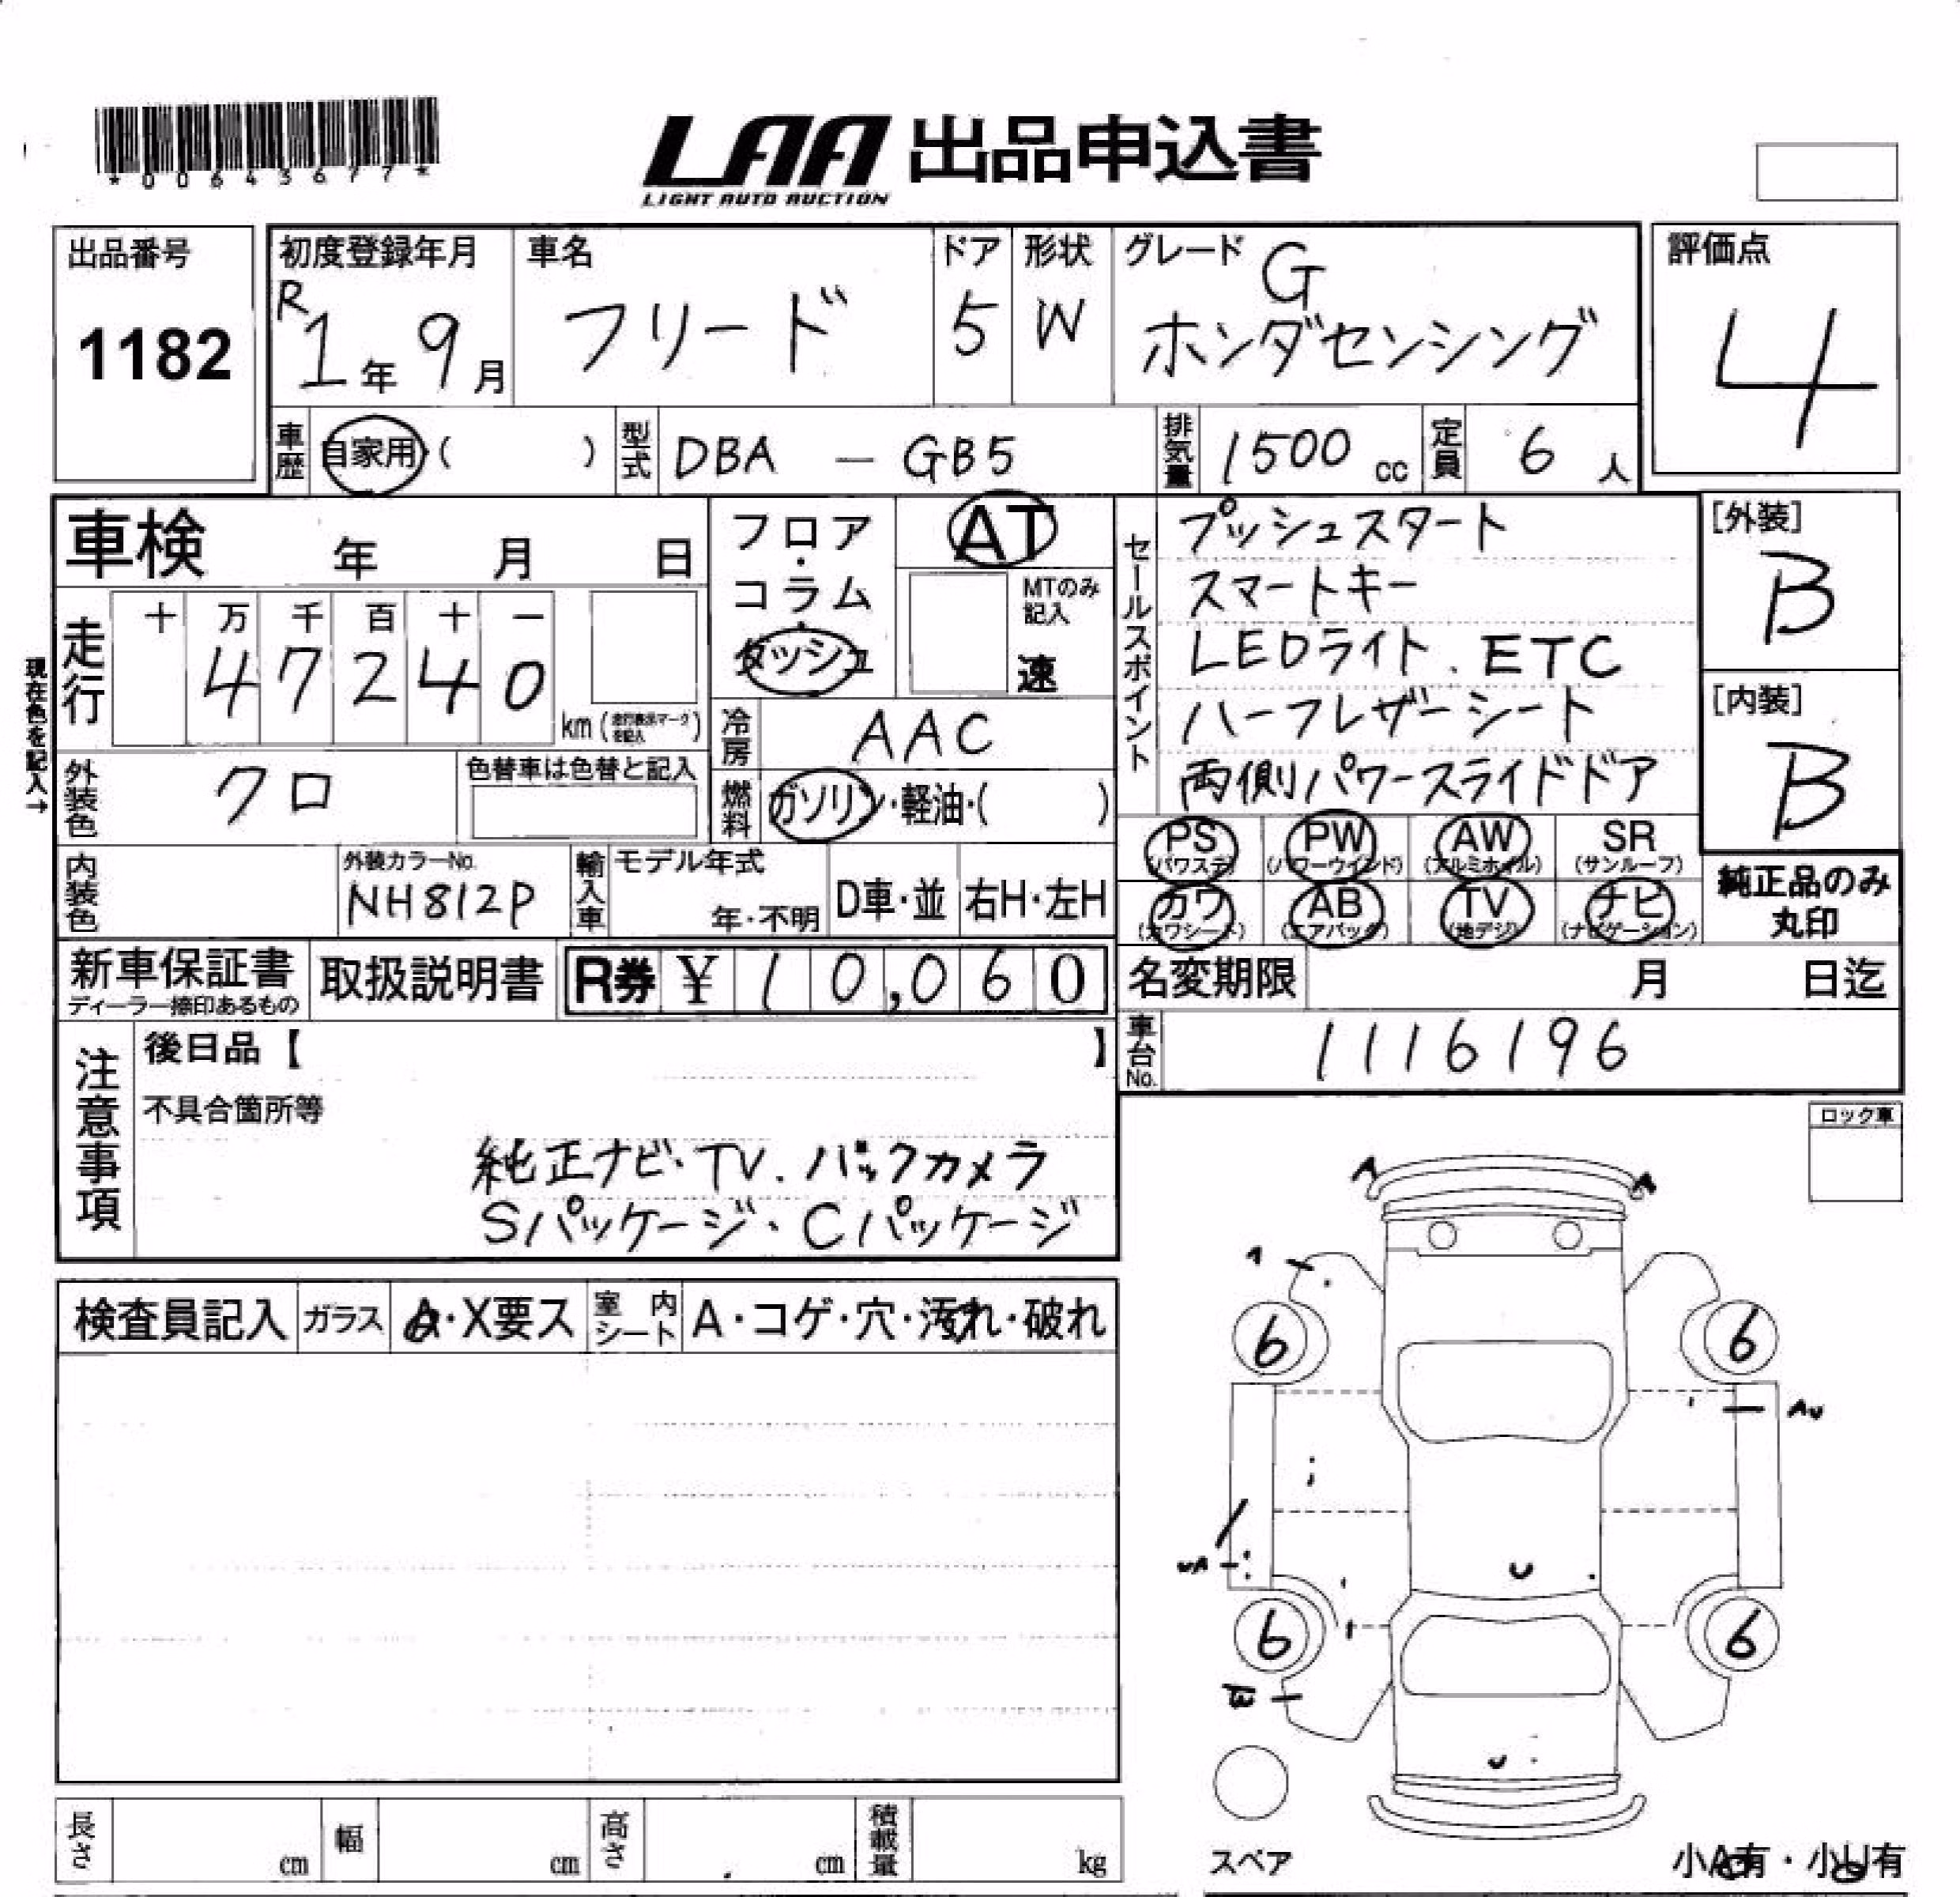 *00643677*
LAA 出品申込書
LIGHT AUTO AUCTION
出品番号
1182
初度登録年月
R1年 9月
車名
フリード
ドア
5
形状
W
グレード G
ホンダセンシング
評価点
4
車歴
自家用・( )
型式
DBA - GB5
排気量
1500 cc
定員
6 人
車検 年 月 日
走行
十 万 千 百 十 一
4 7 2 4 0
km (走行表示マークを記入)
現在色を記入→
フロア・コラム・ダッシュ
AT
MTのみ記入
速
冷房
AAC
燃料
ガソリン・軽油・( )
外装色
クロ
色替車は色替と記入
内装色
外装カラーNo.
NH812P
輸入車
モデル年式
年・不明
D車・並
右H・左H
セールスポイント
プッシュスタート
スマートキー
LEDライト. ETC
ハーフレザーシート
両側パワースライドドア
[外装]
B
[内装]
B
PS (パワステ)
PW (パワーウインド)
AW (アルミホイル)
SR (サンルーフ)
カワ (カワシート)
AB (エアバック)
TV (地デジ)
ナビ (ナビゲーション)
純正品のみ丸印
新車保証書
ディーラー捺印あるもの
取扱説明書
R券 ¥ 10,060
名変期限 月 日迄
車台No.
1116196
注意事項
後日品【 】
不具合箇所等
純正ナビ・TV. バックカメラ
Sパッケージ・Cパッケージ
ロック車
検査員記入
ガラス
A・X要ス
室内シート
A・コゲ・穴・汚れ・破れ
A
A
6
6
AU
6
6
スペア
小A有・小U有
長さ cm
幅 cm
高さ cm
積載量 kg